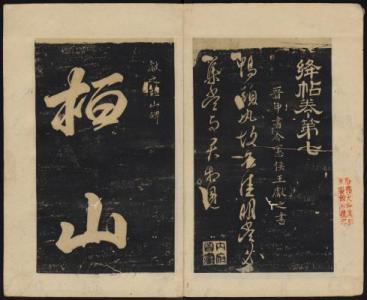 絳帖卷第七
晉中書令王獻之書
鴨頭丸故不佳明當必
集當與君相見
獻之
山碑
栢山